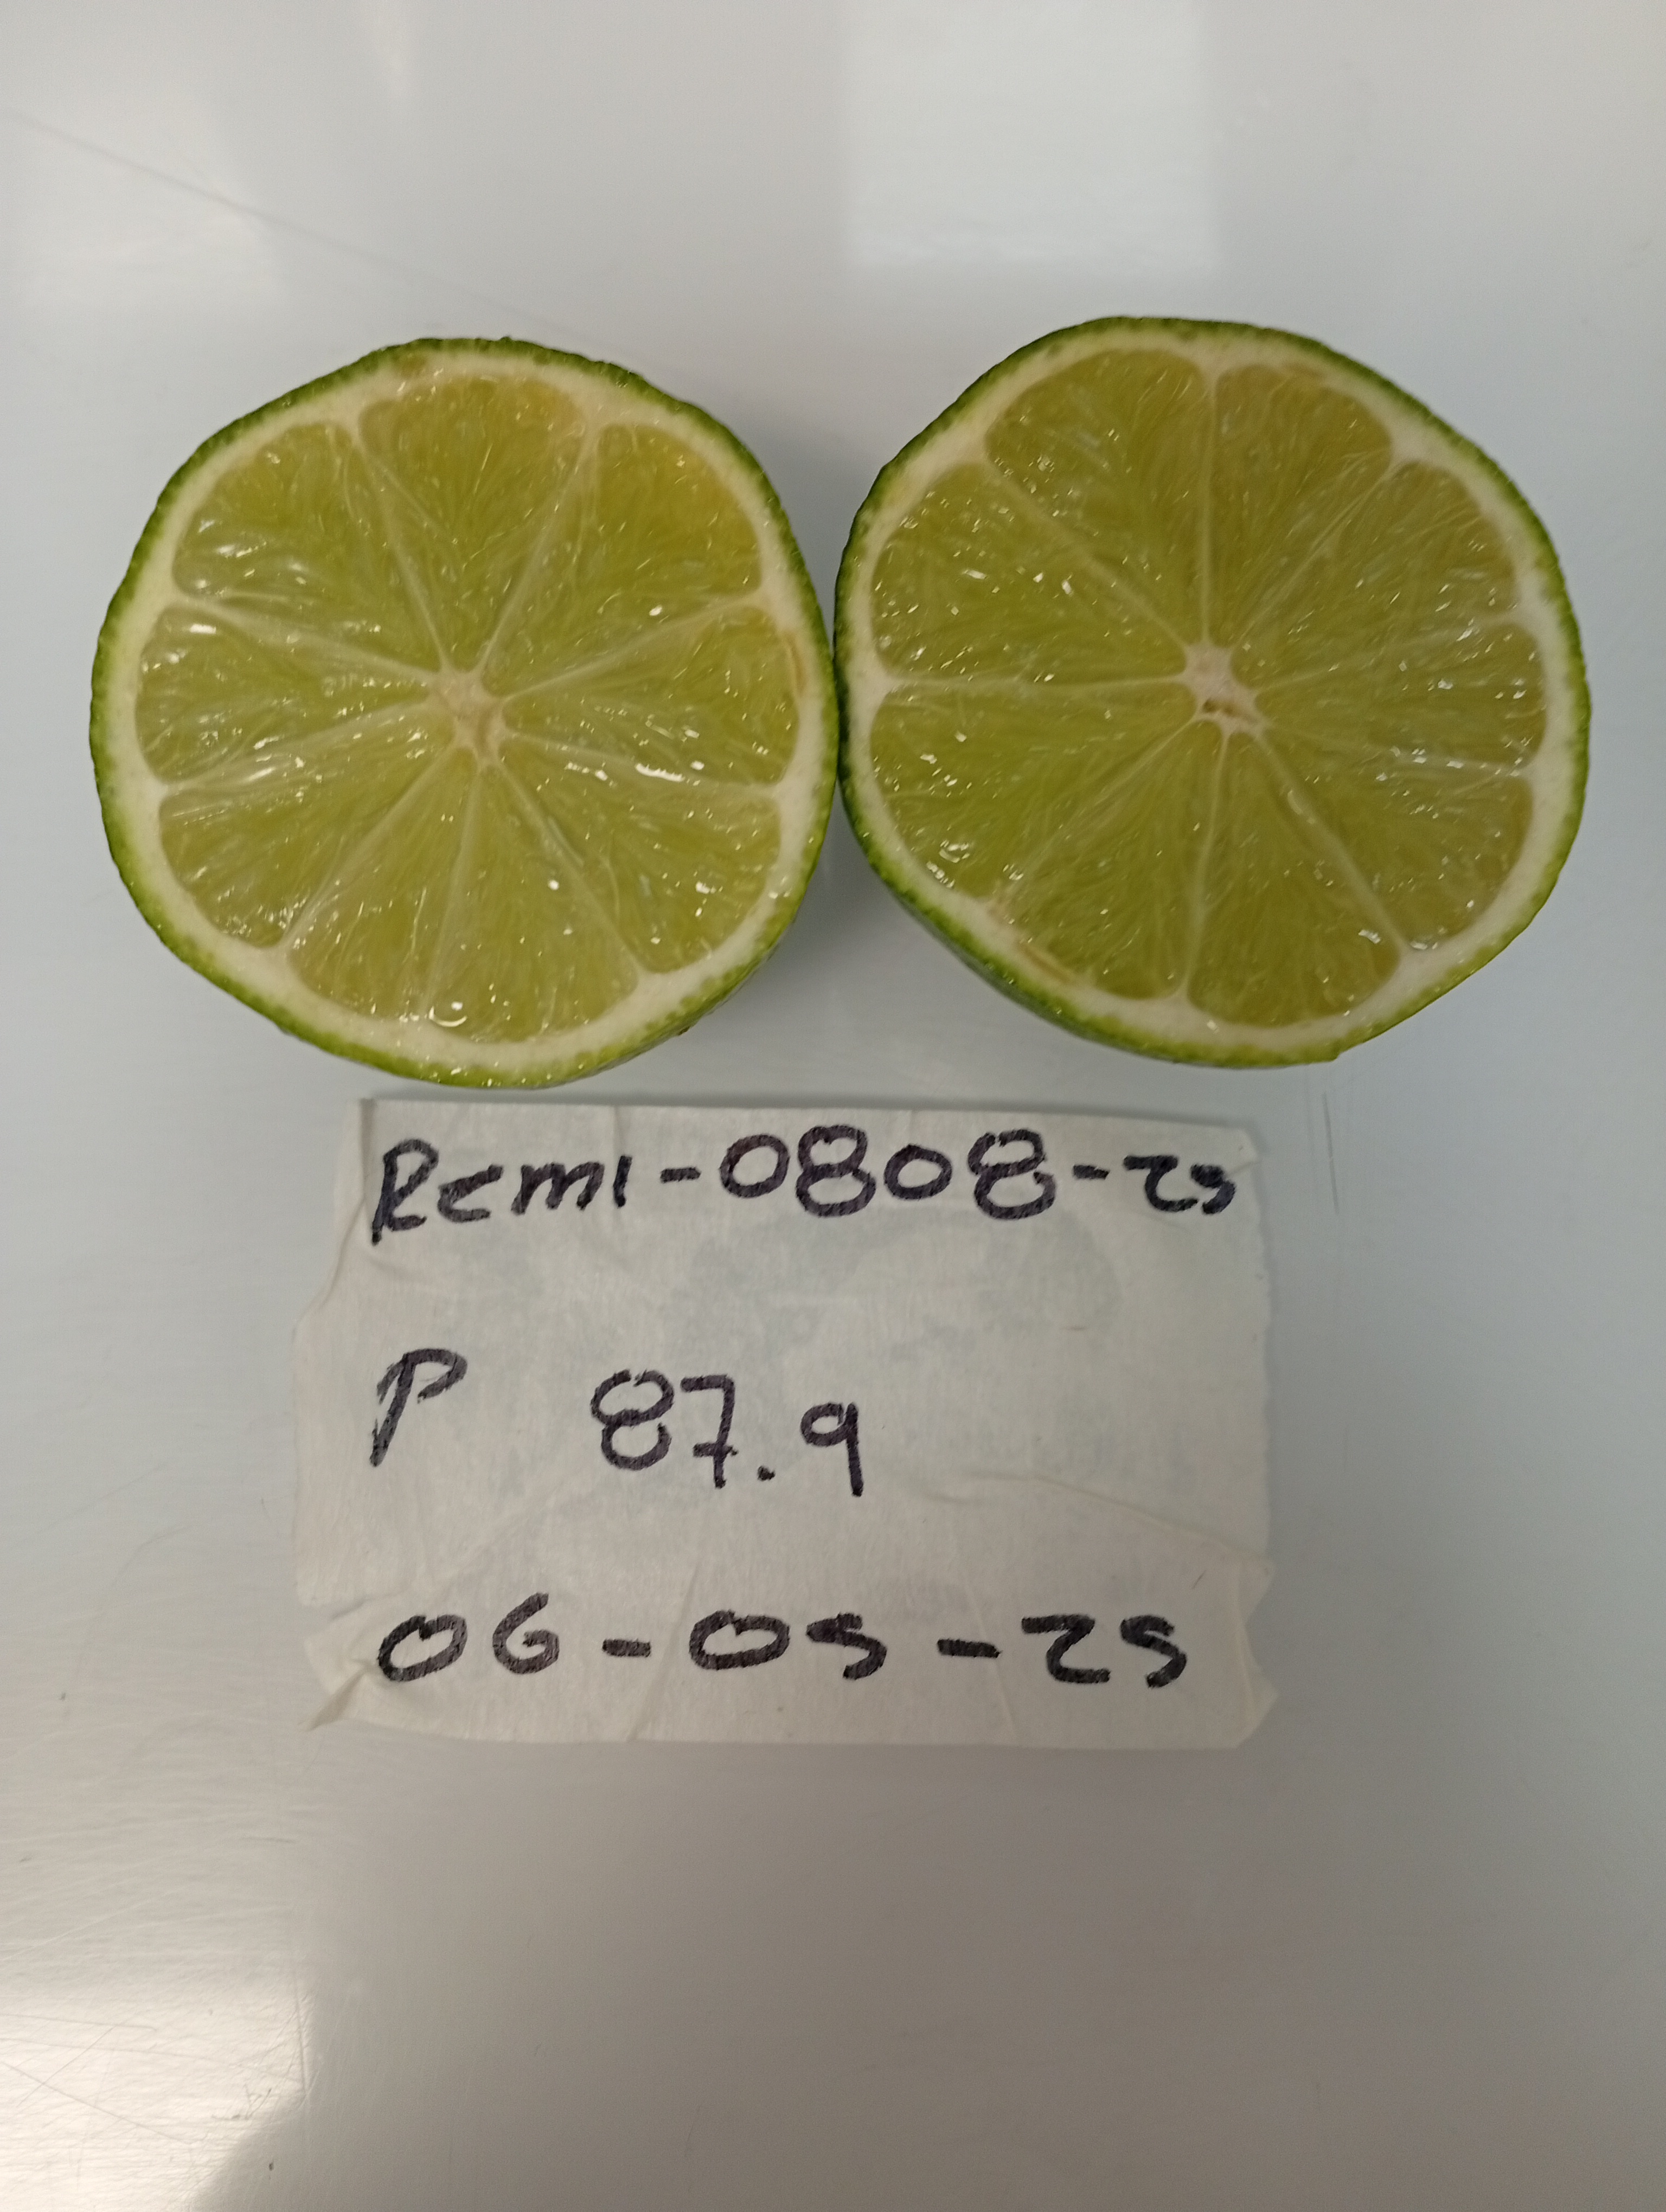 Rcml-0808-25
P 87.9
06-05-25